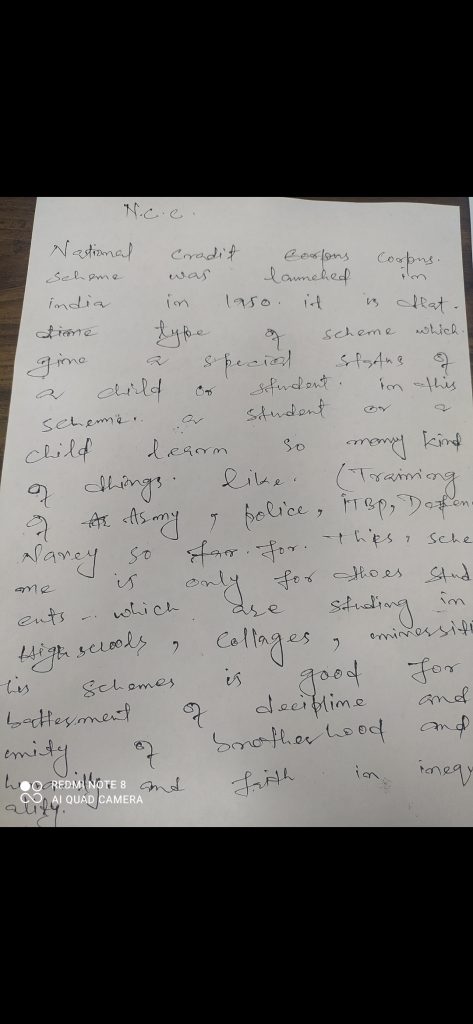 N.C.C.
National Cradit Corpns Corpns.
scheme was launched in
india in 1950. it is that.
time type of scheme which.
gime a special status of
a child or student. in this
scheme. a student or a
child learn so many kind
of things. like. (Training
of Ar Asmy, police, ITBP, Defen
Navey so far. for. thies, sche
me is only for thoes stud
ents.. which are studing in
High scloods, collages, uninessiti
his schemes is good for
battesment of decipline and
unity of brotherhood and
and frith in inequ
ality.
REDMI NOTE 8
AI QUAD CAMERA